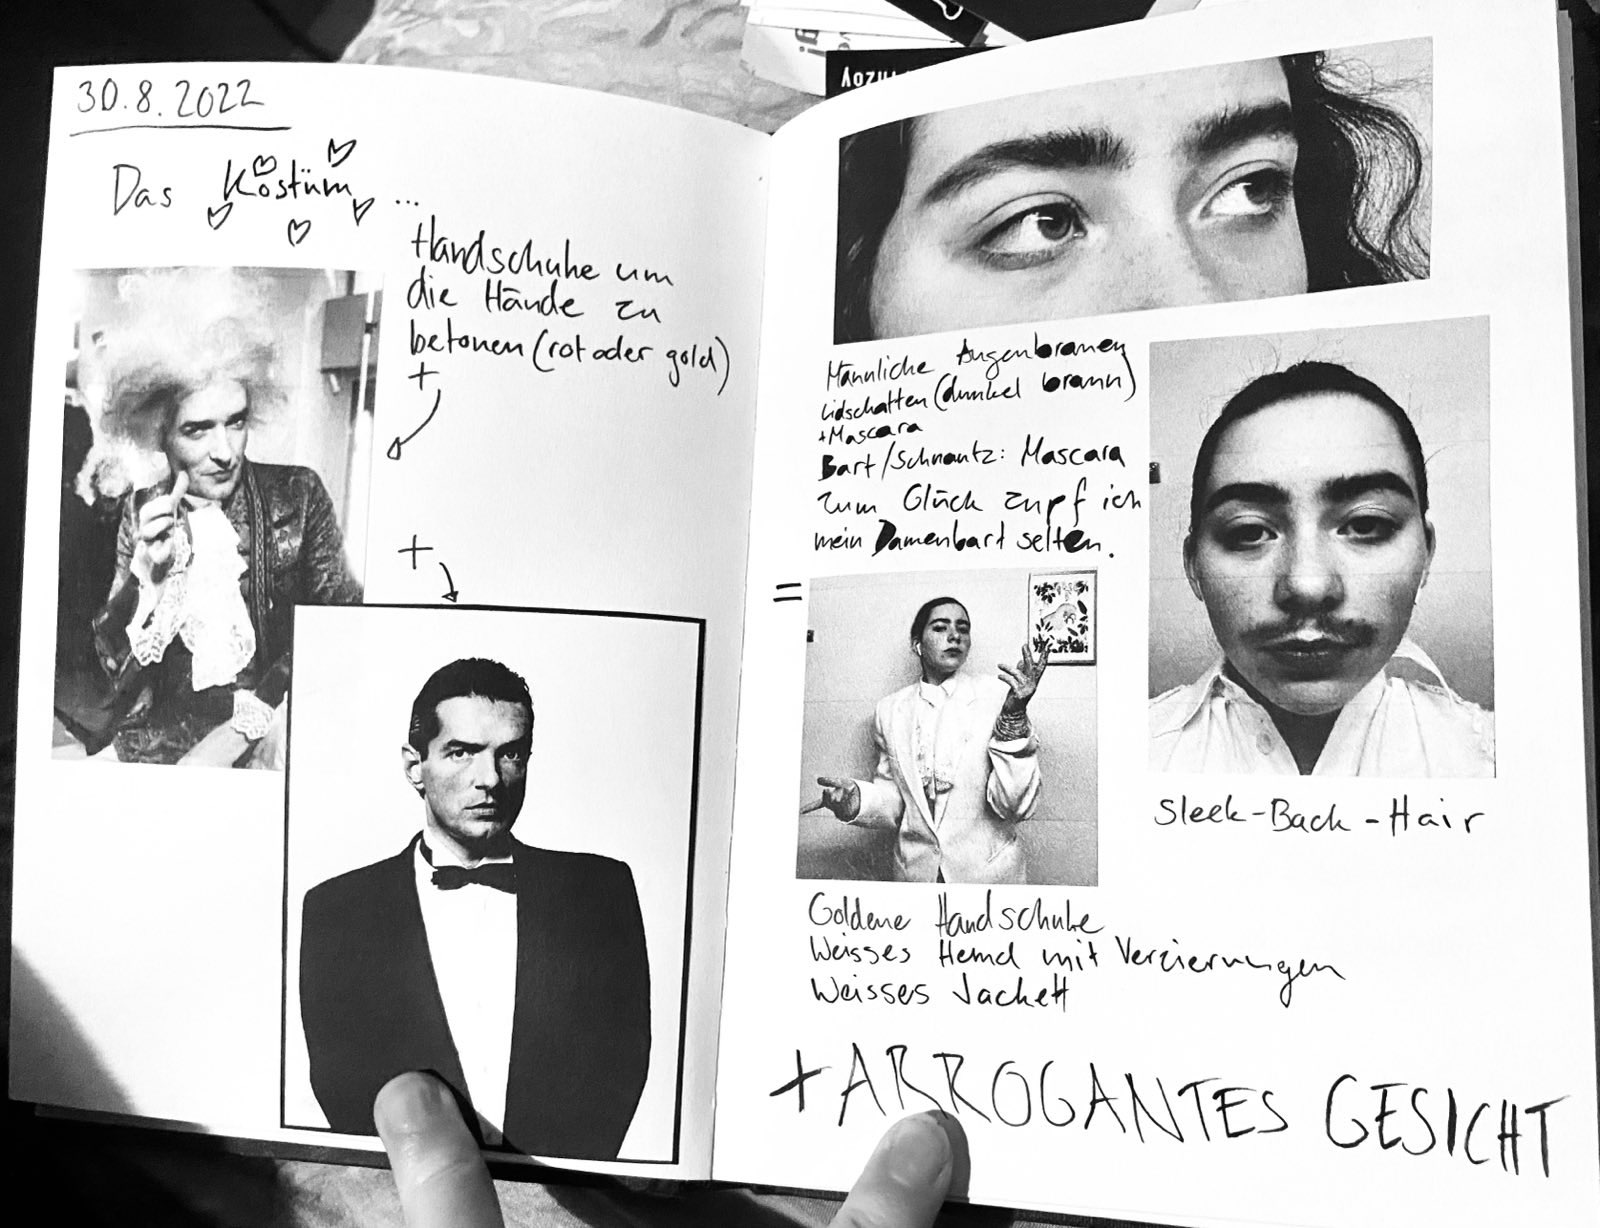 30.8.2022
Das Kostüm ...
Handschuhe um
die Hände zu
betonen (rot oder gold)
+
+
Männliche Augenbrauen
Lidschatten (dunkel braun)
+Mascara
Bart/Schnautz: Mascara
Zum Glück zupf ich
mein Damenbart selten.
=
Sleek-Back-Hair
Goldene Handschuhe
Weisses Hemd mit Verzierungen
Weisses Jackett
+ARROGANTES GESICHT